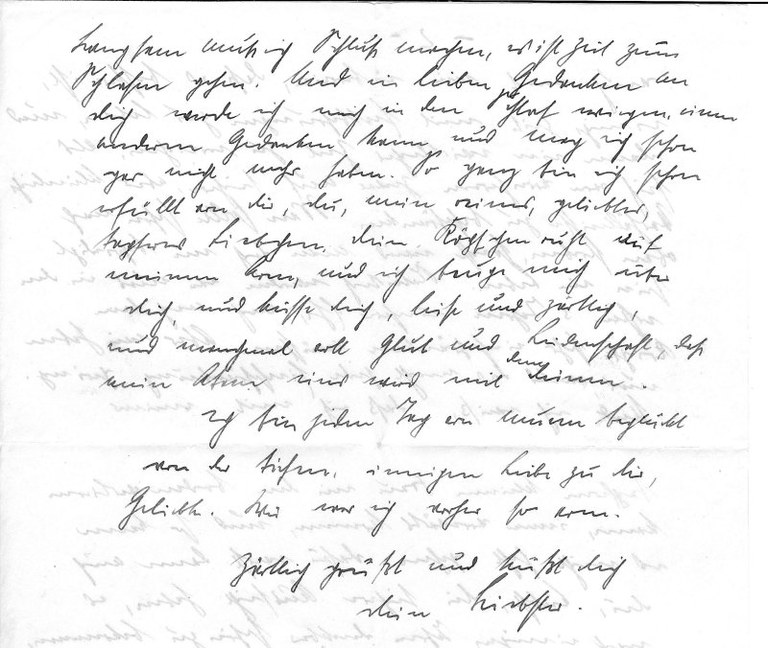 Langsam muß ich Schluß machen, es ist Zeit zum
Schlafen gehen. Und in lieben Gedanken an
dich werde ich mich in den Schlaf wiegen, einen
anderen Gedanken kann und mag ich schon
gar nicht mehr haben. So ganz bin ich schon
erfüllt von dir, du, mein reines, geliebtes,
tapferes Liebchen, dein Köpfchen ruht auf
meinem Arm, und ich beuge mich über
dich, und küsse dich, leise und zärtlich,
und manchmal voll Glut und Leidenschaft, daß
mein Atem eins wird mit dem deinen.
Ich bin jeden Tag von neuem beglückt
von der tiefen, innigen Liebe zu dir,
Geliebte. Wie war ich vorher so arm.
Zärtlich grüßt und küßt dich
dein Liebster.